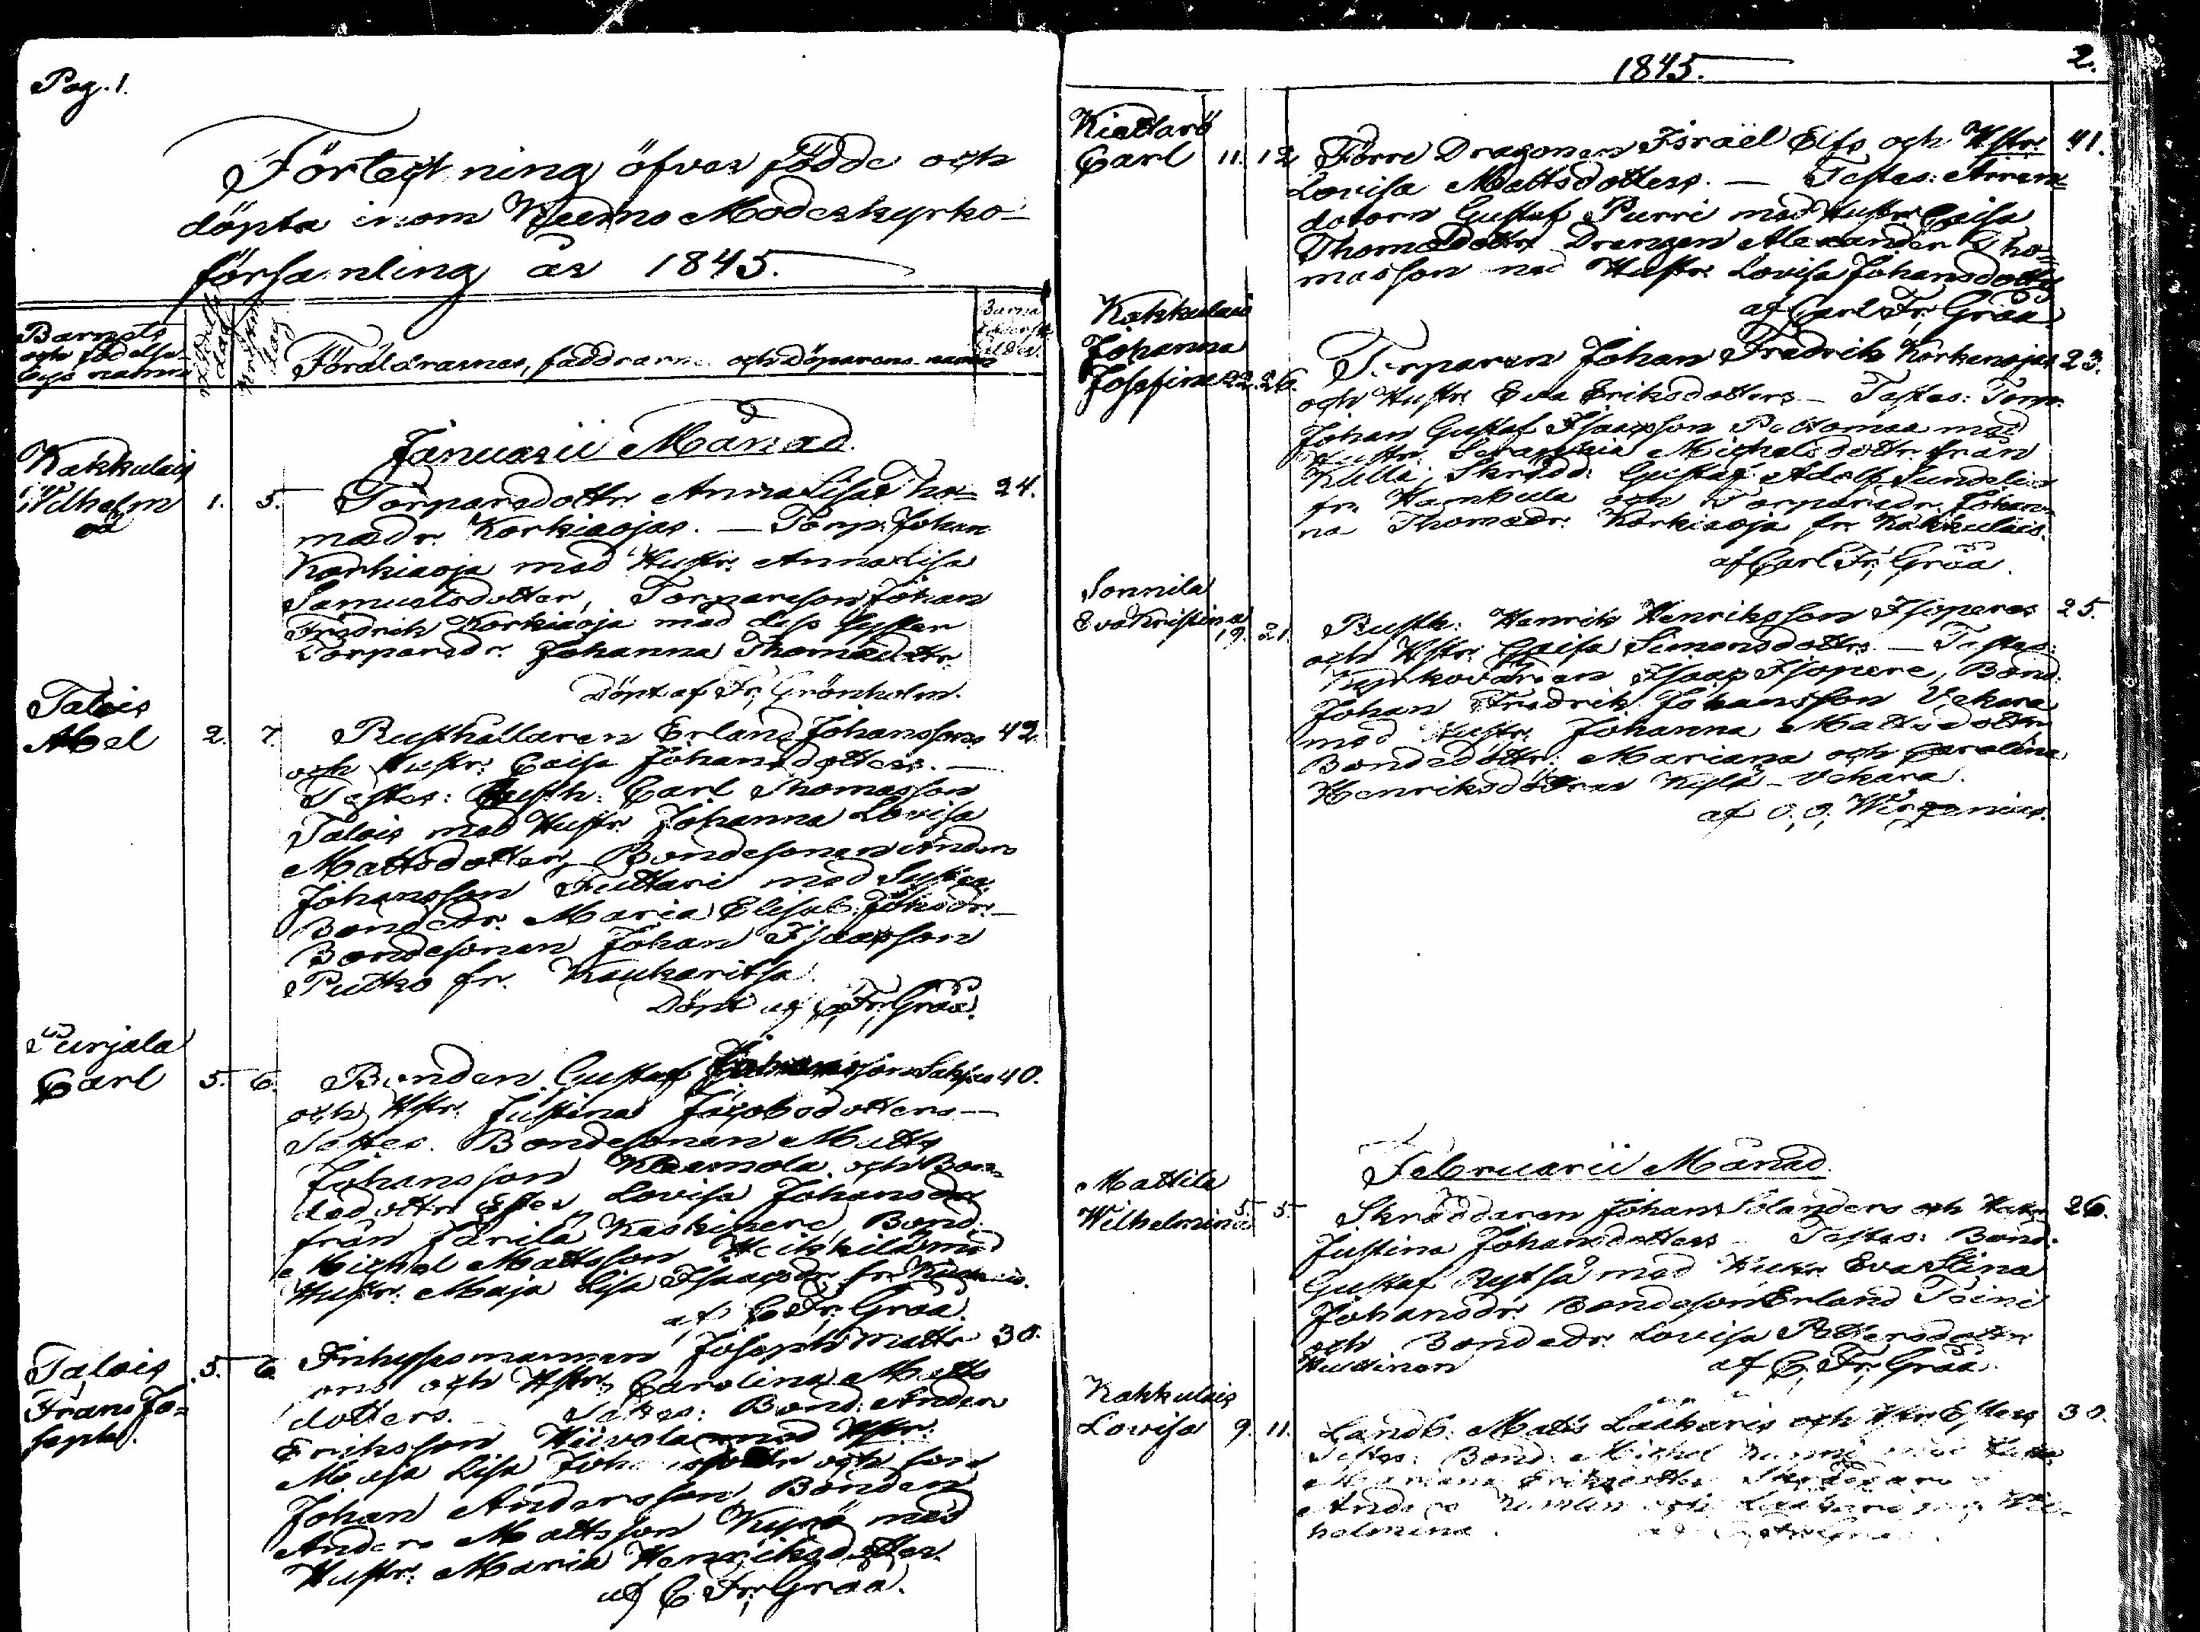 Pag. 1.
Förteckning öfver födde och
döpta inom Kiumo Moderkyrko-
församling år 1845.
Barnets
och födelse-
bys namn
Födelse
dag
dag
Föräldrarnes, faddrarnes och döparens namn
Barna
ålder
Januarii Månad.
Kakkulais
Wilhelm
oä
1. 5. Torparedottr. Anna Lisa Tho= 24.
masdr. Korkiaojas. — Torp. Johan
Korkiaoja med Hustr. Anna Lisa
Samuelsdotter, Torpareson Johan
Fredrik Korkiaoja med dess Syster
Torparedr. Johanna Thomasdottr.
Döpt af Fr. Grönholm.
Talois
Abel
2. 7. Rusthållaren Erland Johanssons 42.
och Hustr. Caisa Johansdotters. —
Testes: Rusth: Carl Thomasson
Talois med Hustr. Johanna Lovisa
Mattsdotter, Bondesonen Anders
Johansson Tuttari med Syster
Bondedr. Maria Elisab. Johsdr. —
Bondesonen Johan Isaacsson
Putko fr. Kaukaritsa.
Döpt af C. Fr. Gråå.
Purjala
Carl
5. 6. Bonden Gustaf 40.
och Hstr. Justina Jacobsdotters —
Testes. Bondesonen Matts
Johansson och Bon=
dedottr Ester Lovisa Johansdr
från Järilä Keskipere, Bond.
Michel Mattsson Heikkilä med
Hustr. Maja Lisa Isaacsdr. fr.
af C. Fr. Gråå.
Talois
Frans Jo=
seph.
5. 6. Inhysesmannen Joseph Matts 30.
sons och Hstr. Carolina Matts
dotters. — Testes: Bond. Anders
Eriksson Hiivola med Hstr.
Maja Lisa och son
Johan Andersson, Bonden
Anders Mattsson Kyrö med
Hustr. Maria Henriksdotter.
af C. Fr. Gråå.
1845. 2.
Kiettarö
Carl
11. 12. Förre Dragonen Israël Elfs och Hstr. 41.
Lovisa Mattsdotters. — Testes: Arren=
datorn Gustaf Purri med Hustr. Caisa
Thomasdottr. Drengen Alexander Tho=
masson med Hustr. Lovisa Johansdotter
af Carl Fr. Gråå.
Kakkulais
Johanna
Josefina
22. 26. Torparen Johan Fredrik Korkeaojas 23.
och Hustr. Eva Eriksdotters — Testes: Torp.
Johan Gustaf Isaacsson med
Hustr. Serafina Michelsdottr. från
Kulla, Skrädd. Gustaf Adolf Sundelin
fr. Hambula och Torparedr. Johan=
na Thomasdr. Korkiaoja fr. Kakkulais.
af Carl Fr. Gråå.
Sonnila
Eva Kristina
19. 21. Rusth: Henrik Henriksson Isoperes 25.
och Hstr. Caisa Simonsdotters. — Testes:
Kyrkovärden Isaac Isopere, Bond.
Johan Fredrik Johansson Vekara
med Hustr. Johanna Mattsdotter
Bondedöttr. Mariana och Carolina
Henriksdöttrar Vekara.
af O. O. Wirzenius.
Februarii Månad.
Mattila
Wilhelmina
5. 5. Skräddaren Johan Solanders och Hustr. 26.
Justina Johansdotters — Testes: Bond.
Gustaf Rytsä med Hustr. Eva Stina
Johansdr. Bondeson Erland Toini
och Bondedr. Lovisa Pettersdotter
af C. Fr. Gråå.
Kakkulais
Lovisa
9. 11. Landb. Matts Lääkäris och Hstr. Esters 30.
Testes: Bond. Michel Nummi med Hustr
Mariana Eriksdotter Skräddare
Anders och Wil=
helmina